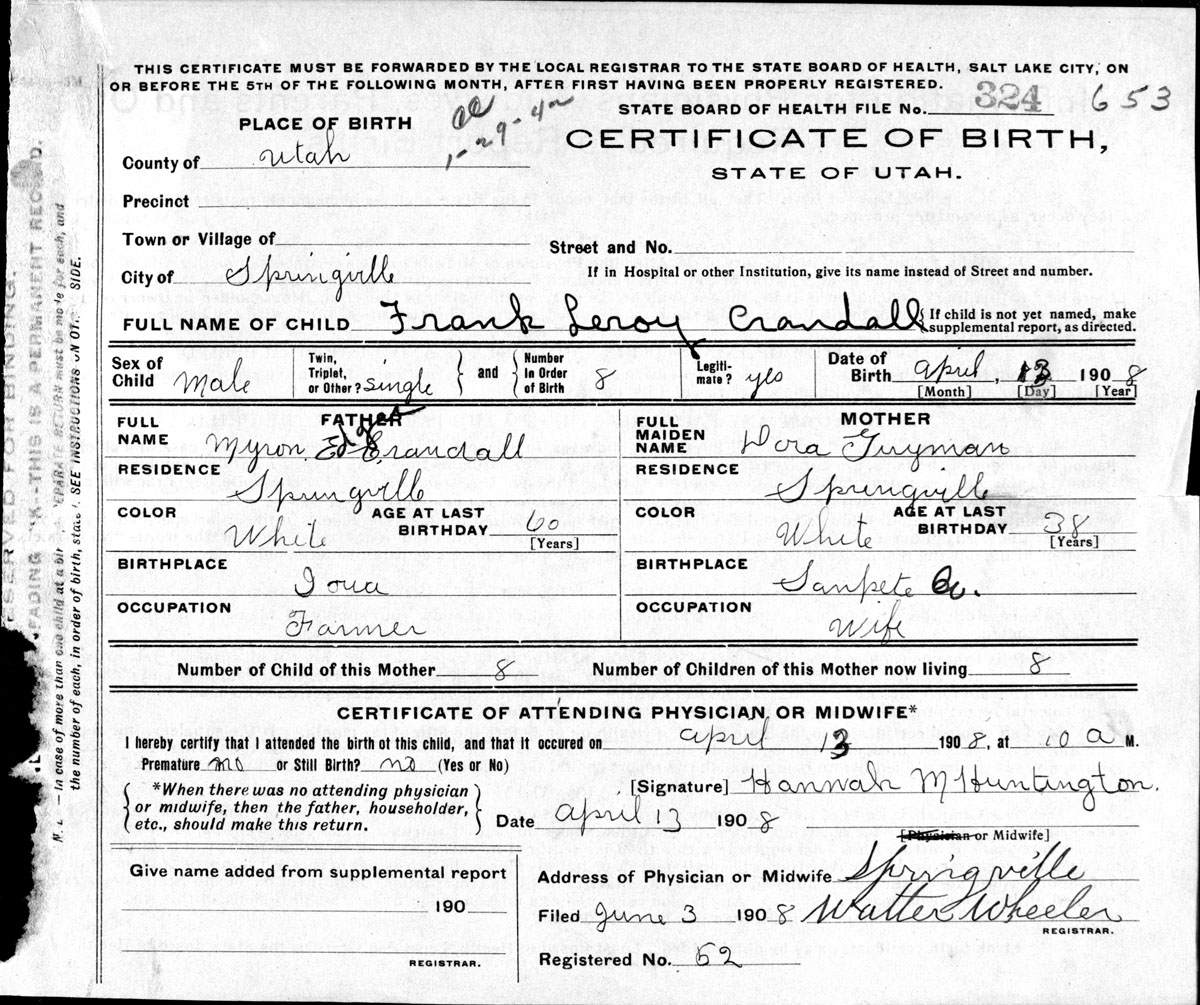 THIS CERTIFICATE MUST BE FORWARDED BY THE LOCAL REGISTRAR TO THE STATE BOARD OF HEALTH, SALT LAKE CITY, ON
OR BEFORE THE 5TH OF THE FOLLOWING MONTH, AFTER FIRST HAVING BEEN PROPERLY REGISTERED.
STATE BOARD OF HEALTH FILE No. 324 653
PLACE OF BIRTH
1-29-42
CERTIFICATE OF BIRTH,
STATE OF UTAH.
County of Utah
Precinct
Town or Village of
Street and No.
City of Springville
If in Hospital or other Institution, give its name instead of Street and number.
FULL NAME OF CHILD Frank Leroy Crandall
{ If child is not yet named, make
supplemental report, as directed.
Sex of Child Male
Twin, Triplet, or Other? single } and { Number In Order of Birth 8
Legitimate? yes
Date of Birth april, 13 1908
[Month] [Day] [Year]
FATHER
FULL NAME Myron Ed Crandall
RESIDENCE Springville
COLOR White AGE AT LAST BIRTHDAY 60 [Years]
BIRTHPLACE Ioua
OCCUPATION Farmer
MOTHER
FULL MAIDEN NAME Dora Guyman
RESIDENCE Springville
COLOR White AGE AT LAST BIRTHDAY 38 [Years]
BIRTHPLACE Sanpete Co.
OCCUPATION Wife
Number of Child of this Mother 8 Number of Children of this Mother now living 8
CERTIFICATE OF ATTENDING PHYSICIAN OR MIDWIFE*
I hereby certify that I attended the birth of this child, and that it occured on april 13 1908, at 10 a M.
Premature no or Still Birth? no (Yes or No)
[Signature] Hannah M Huntington.
{ *When there was no attending physician
or midwife, then the father, householder,
etc., should make this return. }
Date april 13 1908
[Physician or Midwife]
Give name added from supplemental report
190
REGISTRAR.
Address of Physician or Midwife Springville
Filed June 3 1908 Walter Wheeler
REGISTRAR.
Registered No. 52
ESERVED FOR BINDING.
FADING INK--THIS IS A PERMANENT RECORD.
N. B.—In case of more than one child at a birth, a SEPARATE RETURN must be made for each, and
the number of each, in order of birth, stated. SEE INSTRUCTIONS ON OTHER SIDE.